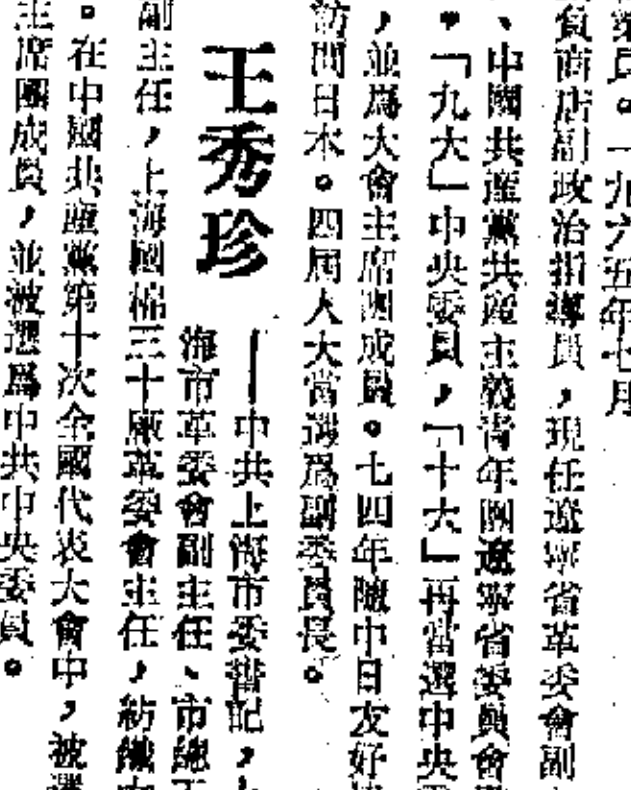 業員。一九六五年七月
負商店副政治指導員，現任遼寧省革委會副
、中國共產黨共產主義青年團遼寧省委員會
。「九大」中央委員，「十大」再當選中央
，並爲大會主席團成員。七四年隨中日友好
訪問日本。四屆人大當選爲副委員長。
王秀珍
——中共上海市委書記，上
海市革委會副主任、市總工
副主任，上海國棉三十廠革委會主任，紡織
。在中國共產黨第十次全國代表大會中，被選
主席團成員，並被選爲中共中央委員。